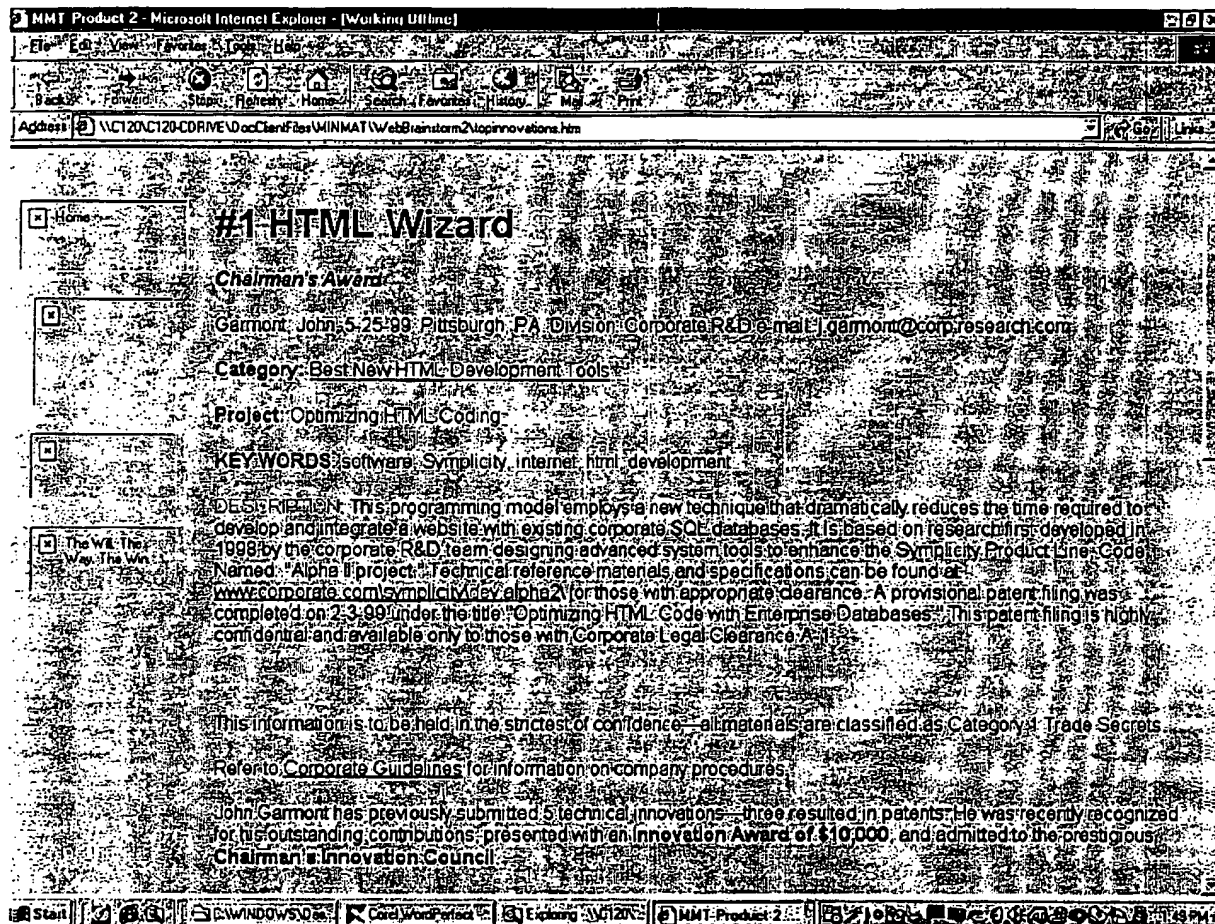 MMT Product 2 - Microsoft Internet Explorer - [Working Offline]
File Edit View Favorites Tools Help
Back Forward Stop Refresh Home Search Favorites History Mail Print
Address \\C120\C120-CDRIVE\DocClientFiles\WINMAT\WebBrainstorm2\topinnovations.htm Go Links
Home
#1 HTML Wizard
Chairman's Award
Garmont, John, 5-25-99, Pittsburgh, PA, Division: Corporate R&D e-mail: j.garmont@corp.research.com
Category: Best New HTML Development Tools
Project: Optimizing HTML Coding
KEY WORDS: software, Symplicity, internet, html, development
DESCRIPTION: This programming model employs a new technique that dramatically reduces the time required to
develop and integrate a website with existing corporate SQL databases. It is based on research first developed in
1998 by the corporate R&D team designing advanced system tools to enhance the Symplicity Product Line, Code
Named: "Alpha II project." Technical reference materials and specifications can be found at
www.corporate.com\symplicity\dev.alpha2\ for those with appropriate clearance. A provisional patent filing was
completed on 2-3-99 under the title "Optimizing HTML Code with Enterprise Databases". This patent filing is highly
confidential and available only to those with Corporate Legal Clearance A-1.
The Will. The
Way. The Win.
This information is to be held in the strictest of confidence—all materials are classified as Category 1 Trade Secrets
Refer to Corporate Guidelines for information on company procedures.
John Garmont has previously submitted 5 technical innovations—three resulted in patents. He was recently recognized
for his outstanding contributions, presented with an Innovation Award of $10,000, and admitted to the prestigious
Chairman's Innovation Council
Start C:\WINDOWS\Des... Corel WordPerfect Exploring - \\C120\... MMT Product 2 -